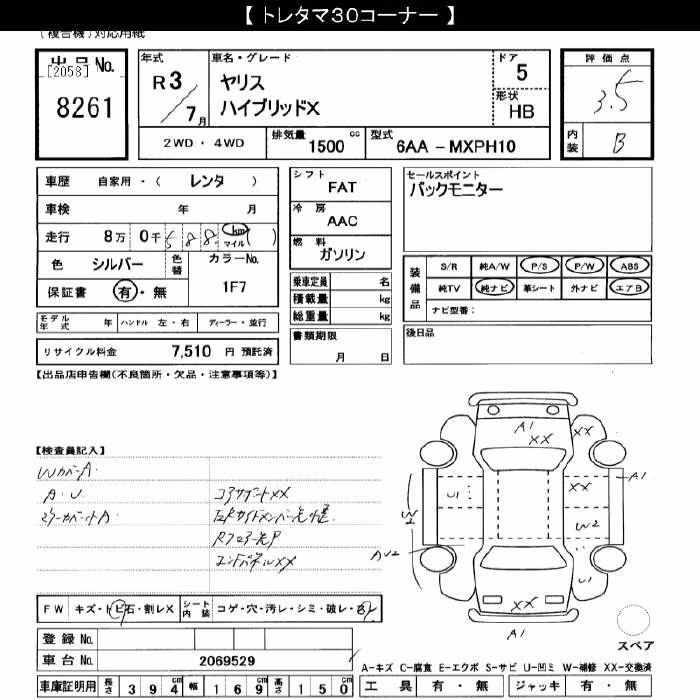 【 トレタマ30コーナー 】
(複合機)対応用紙
出品No.
[2058]
8261
年式
R 3 / 7月
車名・グレード
ヤリス
ハイブリッドX
ドア
5
形状
HB
評価点
3.5
内装
B
2WD ・ 4WD
排気量
1500 cc
型式
6AA － MXPH10
車歴 自家用・( レンタ )
車検 年 月
走行 8万 0千 588 km マイル ( )
色 シルバー 色替
カラーNo.
1F7
保証書 有・無
シフト
FAT
冷房
AAC
燃料
ガソリン
セールスポイント
バックモニター
乗車定員 名
積載量 kg
総重量 kg
装備品
S/R 純A/W P/S P/W ABS
純TV 純ナビ 革シート 外ナビ エアB
ナビ型番：
モデル年式 年 ハンドル 左・右 ディーラー・並行
リサイクル料金 7,510 円 預託済
書類期限
月 日
後日品
【出品店申告欄(不良箇所・欠品・注意事項等)】
【検査員記入】
WカバーA・
A・U
コアサポートXX
RフロアーP
エンドパネルXX
A1
XX
XX
A1
U1
XX
W2
W2
AU2
U1
XX
A1
FW キズ・トビ石・割レX
シート内装 コゲ・穴・汚レ・シミ・破レ・
スペア
登録No.
車台No. 2069529
A-キズ C-腐食 E-エクボ S-サビ U-凹ミ W-補修 XX-交換済
車庫証明用 長さ 394 cm 幅 169 cm 高さ 150 cm
工具 有・無 ジャッキ 有・無